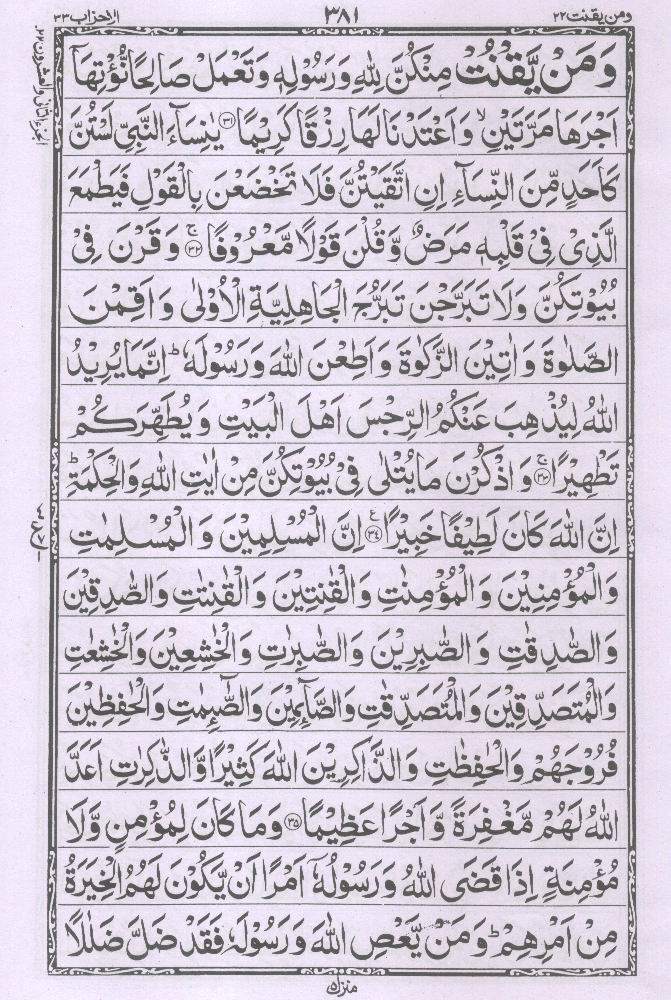 ومن يقنت ٢٢
٣٨١
الاحزاب ٣٣
وَمَنْ يَّقْنُتْ مِنْكُنَّ لِلّٰهِ وَرَسُوْلِهٖ وَتَعْمَلْ صَالِحًا نُّؤْتِهَاۤ
اَجْرَهَا مَرَّتَيْنِ ۙ وَاَعْتَدْنَا لَهَا رِزْقًا كَرِيْمًا ﴿۳۱﴾ يٰنِسَآءَ النَّبِيِّ لَسْتُنَّ
كَاَحَدٍ مِّنَ النِّسَآءِ اِنِ اتَّقَيْتُنَّ فَلَا تَخْضَعْنَ بِالْقَوْلِ فَيَطْمَعَ
الَّذِىْ فِىْ قَلْبِهٖ مَرَضٌ وَّقُلْنَ قَوْلًا مَّعْرُوْفًا ۚ﴿۳۲﴾ وَقَرْنَ فِىْ
بُيُوْتِكُنَّ وَلَا تَبَرَّجْنَ تَبَرُّجَ الْجَاهِلِيَّةِ الْاُوْلٰى وَاَقِمْنَ
الصَّلٰوةَ وَاٰتِيْنَ الزَّكٰوةَ وَاَطِعْنَ اللّٰهَ وَرَسُوْلَهٗ ؕ اِنَّمَا يُرِيْدُ
اللّٰهُ لِيُذْهِبَ عَنْكُمُ الرِّجْسَ اَهْلَ الْبَيْتِ وَيُطَهِّرَكُمْ
تَطْهِيْرًا ۚ﴿۳۳﴾ وَاذْكُرْنَ مَا يُتْلٰى فِىْ بُيُوْتِكُنَّ مِنْ اٰيٰتِ اللّٰهِ وَالْحِكْمَةِ ؕ
اِنَّ اللّٰهَ كَانَ لَطِيْفًا خَبِيْرًا ﴿۳۴﴾ ع اِنَّ الْمُسْلِمِيْنَ وَالْمُسْلِمٰتِ
وَالْمُؤْمِنِيْنَ وَالْمُؤْمِنٰتِ وَالْقٰنِتِيْنَ وَالْقٰنِتٰتِ وَالصّٰدِقِيْنَ
وَالصّٰدِقٰتِ وَالصّٰبِرِيْنَ وَالصّٰبِرٰتِ وَالْخٰشِعِيْنَ وَالْخٰشِعٰتِ
وَالْمُتَصَدِّقِيْنَ وَالْمُتَصَدِّقٰتِ وَالصَّآئِمِيْنَ وَالصّٰٓئِمٰتِ وَالْحٰفِظِيْنَ
فُرُوْجَهُمْ وَالْحٰفِظٰتِ وَالذَّاكِرِيْنَ اللّٰهَ كَثِيْرًا وَّالذّٰكِرٰتِ اَعَدَّ
اللّٰهُ لَهُمْ مَّغْفِرَةً وَّاَجْرًا عَظِيْمًا ﴿۳۵﴾ وَمَا كَانَ لِمُؤْمِنٍ وَّلَا
مُؤْمِنَةٍ اِذَا قَضَى اللّٰهُ وَرَسُوْلُهٗۤ اَمْرًا اَنْ يَّكُوْنَ لَهُمُ الْخِيَرَةُ
مِنْ اَمْرِهِمْ ؕ وَمَنْ يَّعْصِ اللّٰهَ وَرَسُوْلَهٗ فَقَدْ ضَلَّ ضَلٰلًا
منزل ۵